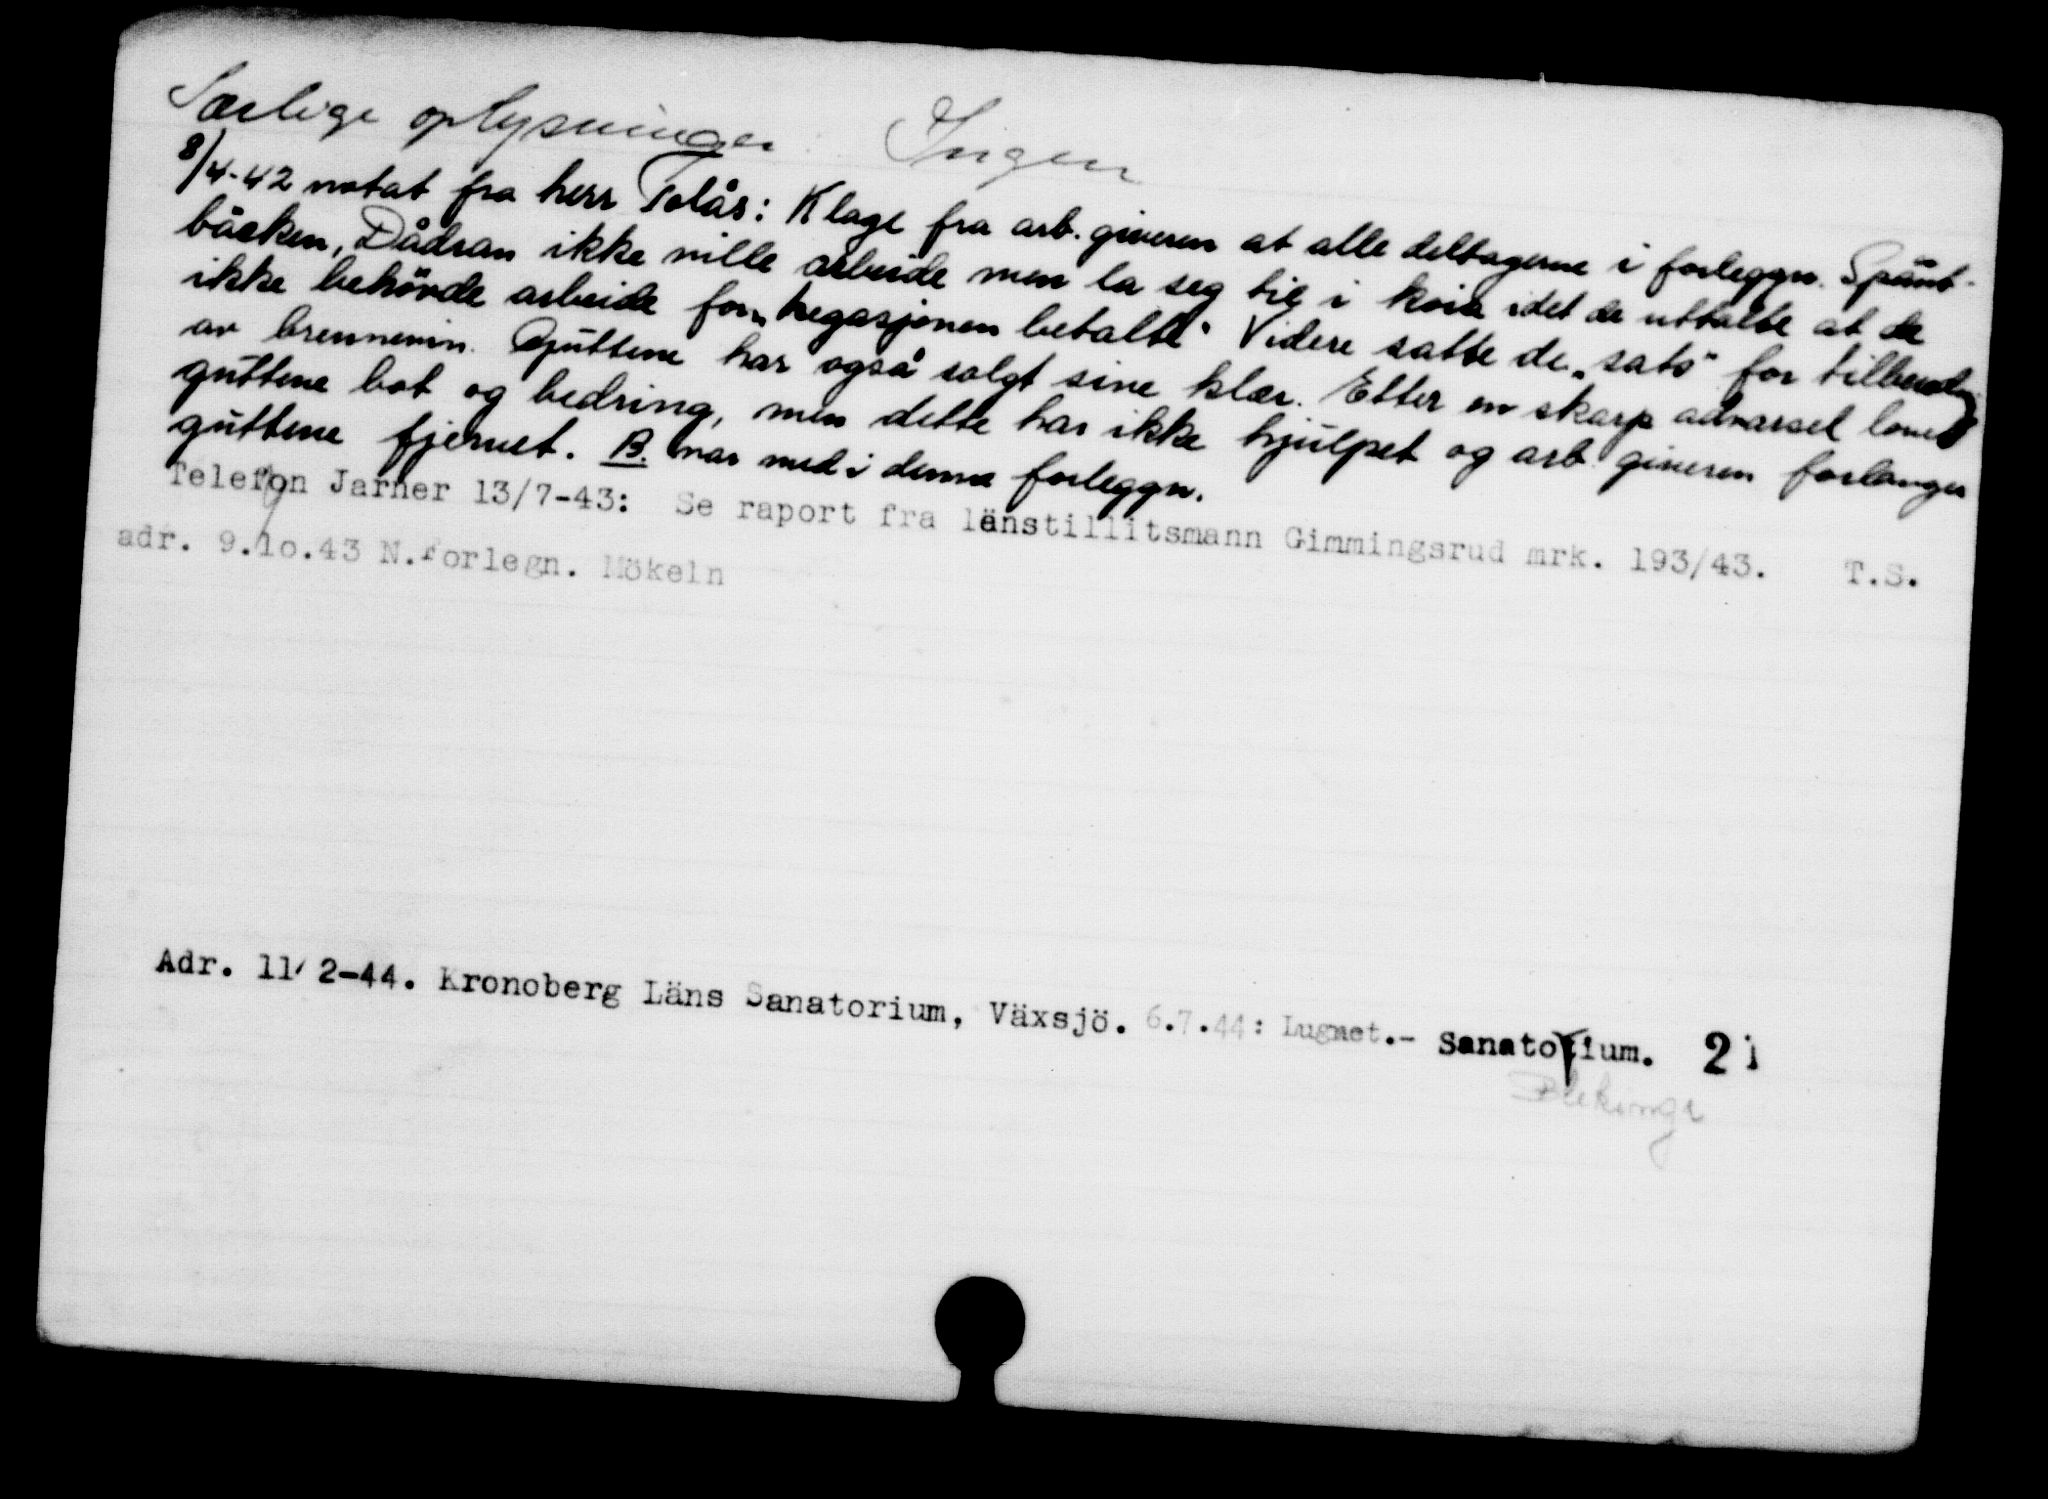 Særlige oplysninger Ingen
8/4-42 notat fra herr Tolås: Klage fra arb.giveren at alle deltagerne i forleggn. Spänt-
bäcken, Dådran ikke ville arbeide men la seg til i koia idet de uttalte at de
ikke behövde arbeide for „legasjonen betalte“ Videre satte de „sats“ for tilberedning
av brennevin. Guttene har også solgt sine klær. Etter en skarp advarsel lovet
guttene bot og bedring, men dette har ikke hjulpet og arb.giveren forlanger
guttene fjernet. B. var med i denne forleggn.
Telefon Jarner 13/7-43: Se raport fra länstillitsmann Gimmingsrud mrk. 193/43. T.S.
adr. 9.10.43 N.Forlegn. Mökeln
Adr. 11/2-44. Kronoberg Läns Sanatorium, Växsjö. 6.7.44: Lugnet.- Sanatorium. 21
Blekinge